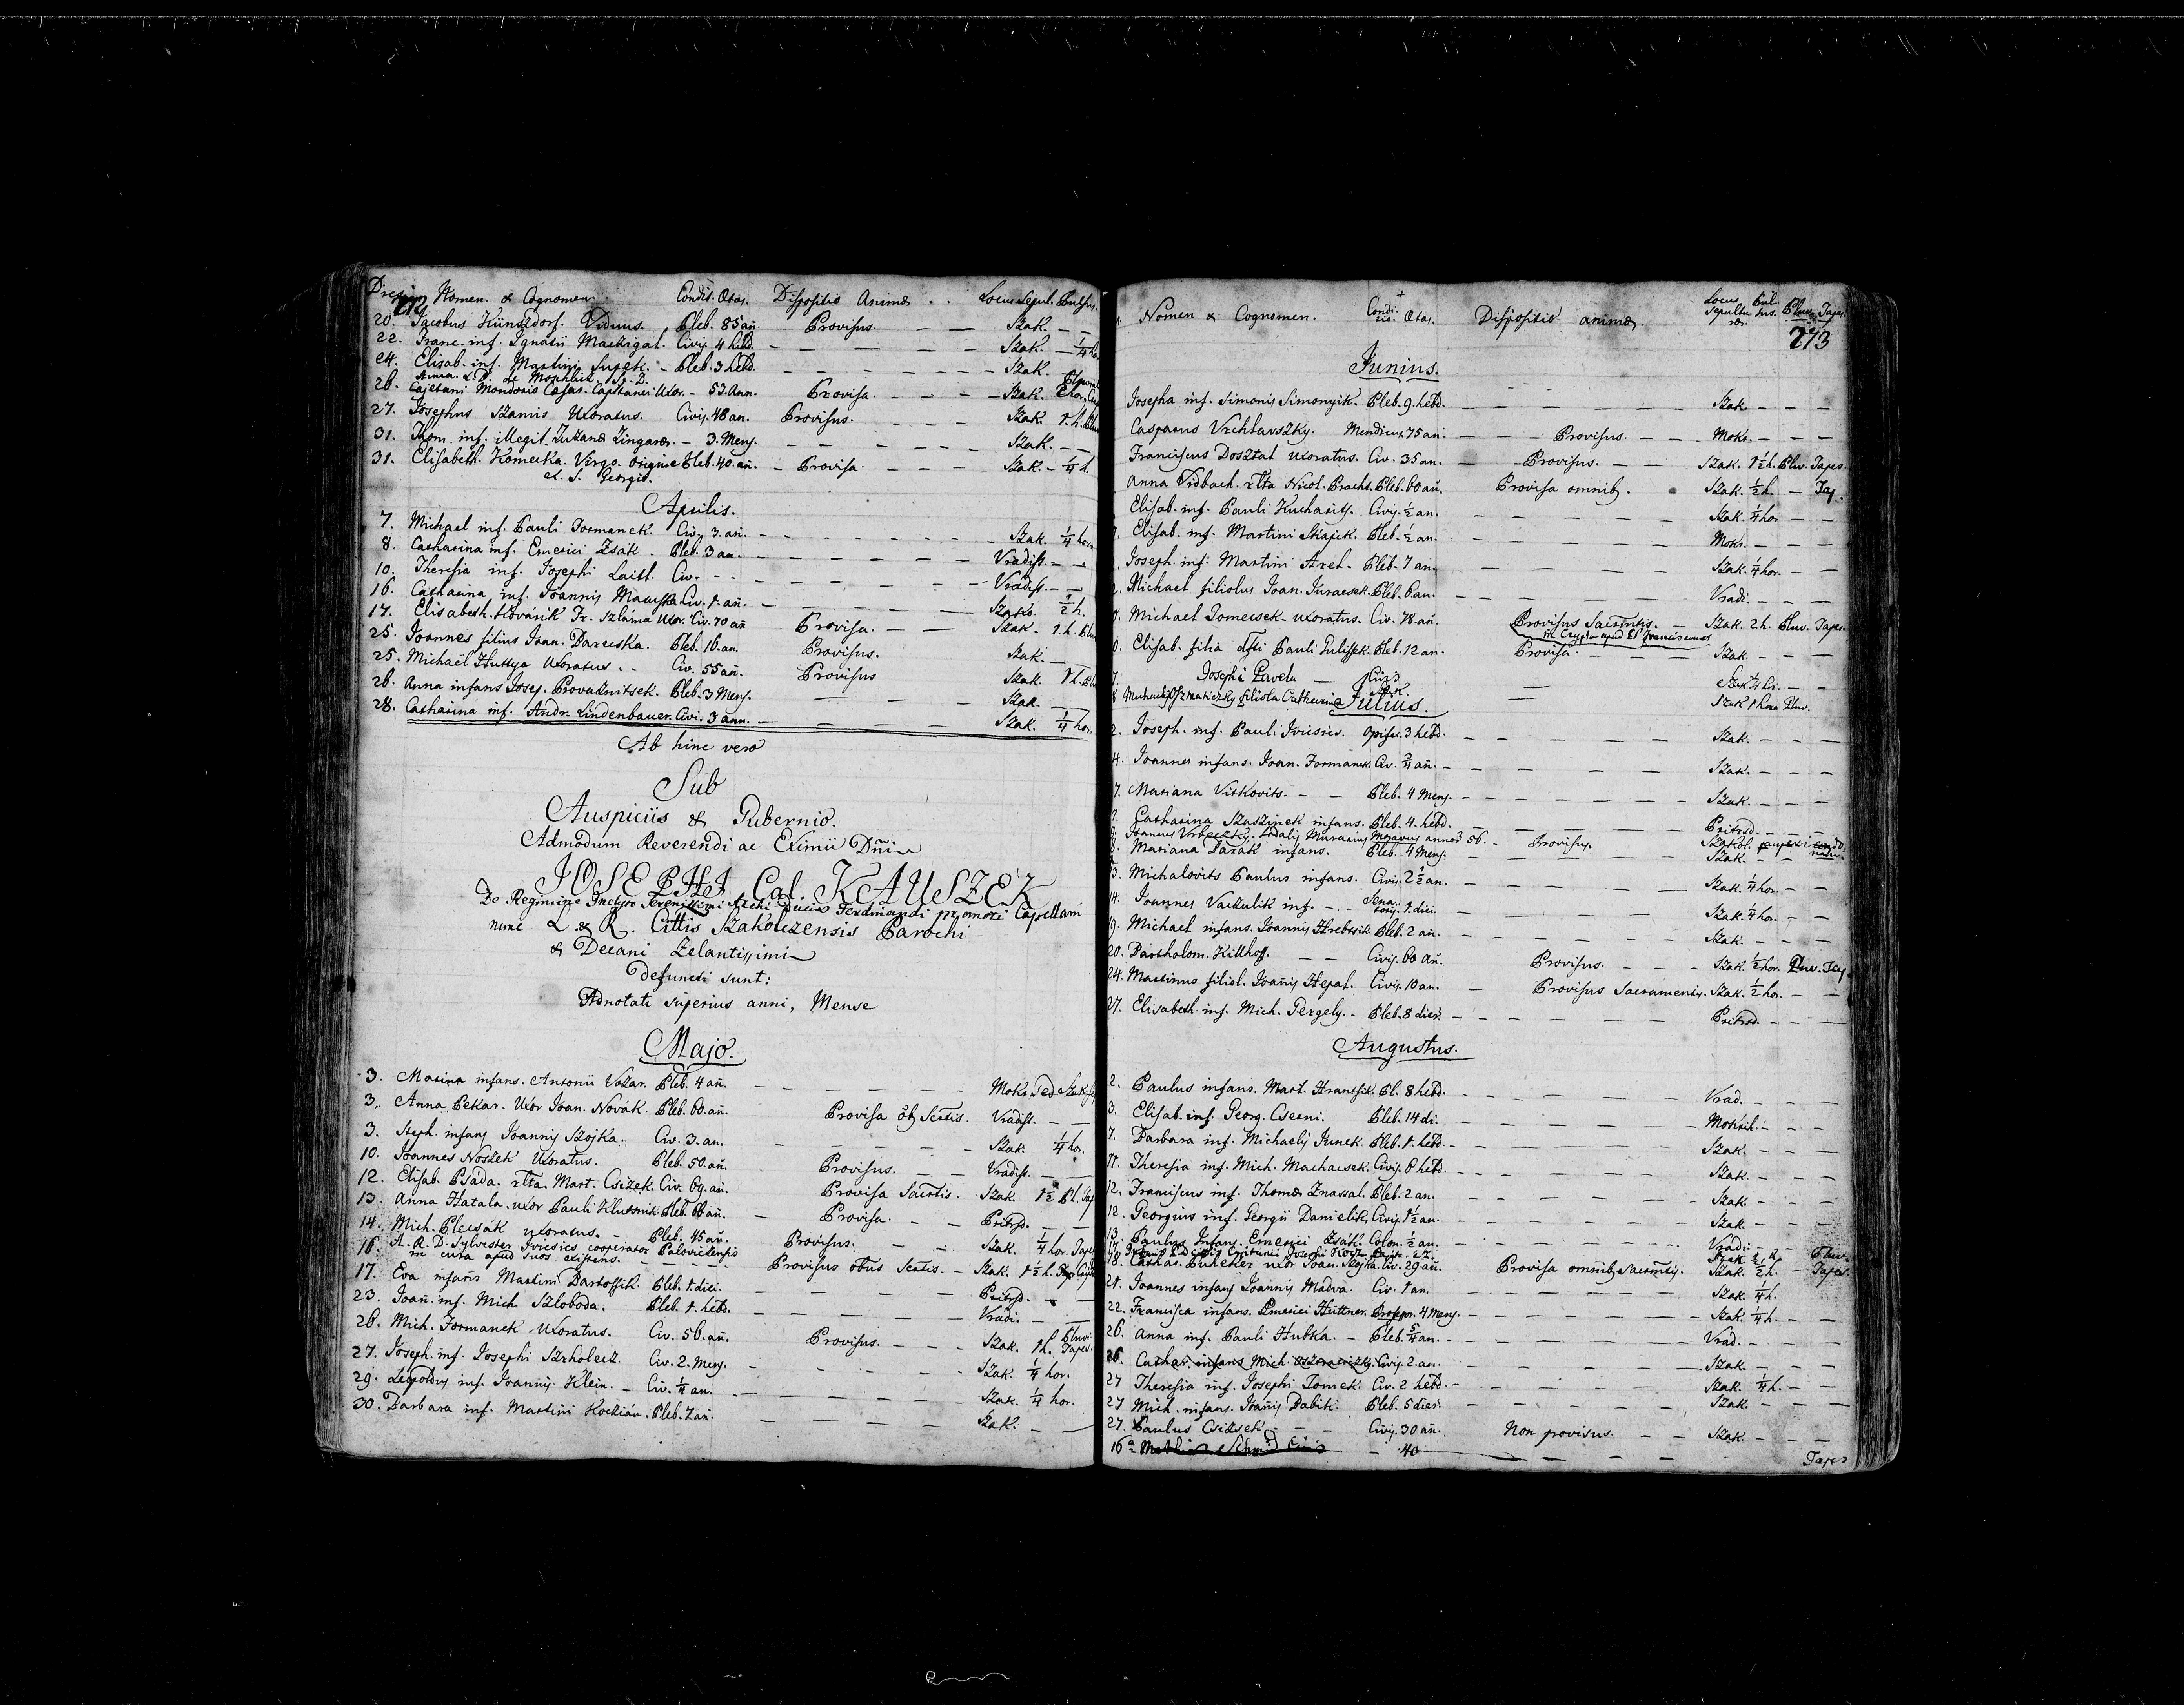 Dies. Nomen. & Cognomen. Condit. Ætas. Dispositio Animæ . . Locus Sepul. Pulsus.
272
20. Jacobus Künszdorf. Viduus. Pleb. 85 añ. Provisus. — — Szak. — —
22. Franc. inf. Ignatii Mackigal. Civis. 4 hebd. — — — — — Szak. — 1/4 ho
24. Elisab. inf. Martini — Pleb. 3 hebd. — — — — Szak.
26. Cajetani Cæsar. Capitanei Uxor. — 53. Ann. Provisa. — — — Szak. 2 hor.
27. Josephus Szamis Uxoratus. Civis. 48 an. Provisus. — — — Szak. 1. h.
31. Thom. inf. illegit. Zuzanæ Zingaræ. — 3. Mens. — — — — Szak. — —
31. Elisabeth. Komecka. Virgo. origine Pleb. 40. añ. — Provisa. — — — Szak. — 1/4 h.
ex S. Georgio.
Aprilis.
7. Michael inf. Pauli Formanek. Civ. 3. añ. — — — — — Szak. 1/4 hor.
8. Catharina inf. Emerici Zsák. Pleb. 3 an. — — — — — Vradist. — —
10. Theresia inf. Josephi Laitl. Civ. — — — — — Vradist. — —
16. Catharina inf. Joannis Civ. 1. añ. — — — — Szako. 1/2 h.
17. Elisabeth. Kovárik Fr. Szláma Uxor. Civ. 70 añ Provisa. — — Szak. 1. h.
25. Joannes filius Joan. Pleb. 16. an. Provisus. Szak. —
25. Michaël Huttya Uxoratus. . Civ. 55 añ. Provisus Szak. 1 h.
26. Anna infans Josep. Provaznitsek. Pleb. 3 Mens. — — Szak. —
28. Catharina inf. Andr. Lindenbauer. Civi. 3 ann. — — Szak. 1/4 hor.
Ab hinc vero
Sub
Auspiciis & Gubernio.
Admodum Reverendi ac Eximii Dñi
JOSEPHI Cal. KAUSZEK
De Regimine Inclyto Serenissimi Archi Ducis Ferdinandi promoti Capellani
nunc L. & R. Cittis Szakolczensis Parochi
& Decani Zelantissimi
Defuncti sunt:
Adnotati superius anni, Mense
Majo.
3. Marina infans. Antonii Vozar. Pleb. 4 añ. — — — — — Mokr. sed
3. Anna Pekar. Uxor Joan. Novák. Pleb. 60. añ. Provisa Sctis. Vradist. — —
3. Steph. infans Joannis Szojka. Civ. 3. an. — — — — Szak. 1/4 hor.
10. Joannes Noszek Uxoratus. Pleb. 50. añ. Provisus. — — Vradist. — —
12. Elisab. Psada. rlta. Mart. Csizek. Civ. 69. añ. Provisa Sacrtis. Szak. 1 1/2
13. Anna Hatala. uxor Pauli Pleb. 66 añ. — Provisa. — — Pritrsd. — —
14. Mich. Plecsák uxoratus. — Pleb. 45 añ. Provisus. — — Szak. 1/4 hor. Tapes
16. A. R. D. Sylvester Ivicsics cooperator
in cura apud suos existens. — — — Provisus Sctis. — Szak. 1 1/2 h.
17. Eva infans Martini Bartossik. Pleb. 1. diei. — — — — Pritrsd. — —
23. Joañ. inf. Mich. Szloboda. Pleb. 1. hebd. — — — — Vradi. — —
26. Mich. Formanek Uxoratus. Civ. 56. añ. Provisus. — — — Szak. 1 h. Pluvi. Tapes.
27. Joseph. inf. Josephi Szkolecz. Civ. 2. Mens. — — — — Szak. 1/4 hor.
29. Leopoldus inf. Joannis Klein. — Civ. 1/4 an. — — — — Szak. 1/4 hor.
30. Barbara inf. Martini Kockián. Pleb. 7 añ. — — — — Szak. — —
Nomen & Cognomen. Conditio. Ætas. Dispositio animæ. Locus Sepulturæ. Pulsus. Pluv. Tapes.
273
Junius.
Josepha inf. Simonis Simonyik. Pleb. 9. hebd. — — — — — Szak — — —
Casparus Vrchlavszky. Mendicus 75 añ. — — — Provisus. — — Mokr. — — —
Franciscus Dosztal uxoratus. Civ. 35 an. — Provisus. — — Szak. 1 1/2 h. Pluv. Tapes.
Anna rlta Nicol. Pracht. Pleb. 60 añ. Provisa omnib. Szak. 1/2 h. — Tap.
Elisab. inf. Pauli Kucharits. Civis. 1/2 an. — — — — Szak. 1/4 hor — —
Elisab. inf. Martini Skajek. Pleb. 1/2 an. — — — — Mokr. — — —
Joseph. inf. Martini Pleb. 7 an. — — — — Szak. 1/4 hor. — —
Michael filiolus Joan. Juracsek. Pleb. 6 an. — — — — Vradi. — — —
Michael Tomecsek uxoratus. Civ. 78. añ. Provisus Sacrtntis. — Szak. 2 h. Pluv. Tapes.
in Crypta apud PP Franciscanos
Elisab. filia dfti Pauli Julissek. Pleb. 12 an. Provisa. — — — Szak. — — —
Josephi Pavela — Civis — Szak 1/4 hr. — —
filiola Catharina — Szak 1 hora Pluv.
Julius.
2. Joseph. inf. Pauli Ivicsics. Opifex. 3 hebd. — — — — Szak. — — —
4. Joannes infans. Joan. Formanek. Civ. 3/4 añ. — — — — — Szak. — — —
7. Mariana Vitkovits. — — Pleb. 4 Mens. — — — — — Szak. — — —
7. Catharina Szaszinek infans. Pleb. 4. hebd. — — — — — Pritrsd. — — —
Joannes Vrbeczky. Sodalis Murarius Moravus annor 56. — Provisus. Szakol. pauperi
8. Mariana Pazák infans. Pleb. 4 Mens. — — — — Szak. — —
Michalovits Paulus infans. Civis. 2 1/2 an. — — — — Szak. 1/4 hor. — —
14. Joannes Vackulik inf. — — Senatoris. 1. diei. — — — — Szak. 1/4 hor. — —
19. Michael infans. Joannis Hrebtsik Pleb. 2 añ. — — — — Szak. — — —
20. Bartholom. Killhof. — — Civis. 60 añ. Provisus. — — — Szak. 1/2 hor. Pluv. Tap.
24. Martinus filiol. Joañis Hepal. Civis. 10 an. — Provisus Sacramentis. Szak. 1/2 hor. — —
27. Elisabeth. inf. Mich. Gergely. — Pleb. 8 dier. — — — — — Pritrsd. — — —
Augustus.
2. Paulus infans. Mart. Hrantsik. Pl. 8 hebd. — — — — Vrad. — — —
3. Elisab. inf. Georg. Cserni. Pleb. 14 di. — — — — Mokrih. — — —
7. Barbara inf. Michaelis Junek. Pleb. 1. hebd. — — — — Szak. — — —
11. Theresia inf. Mich. Machacsek. Civis. 6 hebd. — — — — Szak. — — —
12. Franciscus inf. Thomæ Pleb. 2 an. — — — — Szak. — — —
12. Georgius inf. Georgii Danielik. Civis. 1 1/2 an. — — — — Szak. — — —
13. Paulus Infans. Emerici Zsák. Colon. 1/2 an. — — — — Vradi. — — —
18. Cathar. Puncker uxor Joan. Szojka. Civ. 29 añ. Provisa omnib. Sacrmtis. Szak. 1/2 h. — Tapes.
21. Joannes infans Joannis Madva. Civ. 1 an. — — — — Szak. 1/4 h.
22. Francisca infans. Emerici Hüttner. Professor. 4 Mens. — — — — Szak. 1/4 h. — —
26. Anna inf. Pauli Hubka. — Pleb. 5/4 an. — — — — Vrad. — — —
26. Cathar. infans Mich. Civis. 2. an. — — — — Szak. — — —
27 Theresia inf. Josephi Tomek. Civ. 2 hebd. — — — — Szak. 1/4 h. — —
27 Mich. infans. Joañis Babik. Pleb. 5 dier. — — — — Szak. — — —
27. Paulus Csizsek — — Civis. 30 añ. Non provisus. — — Szak. — — —
16 Mathias Schmid Civis — 40 — — — — Tapes